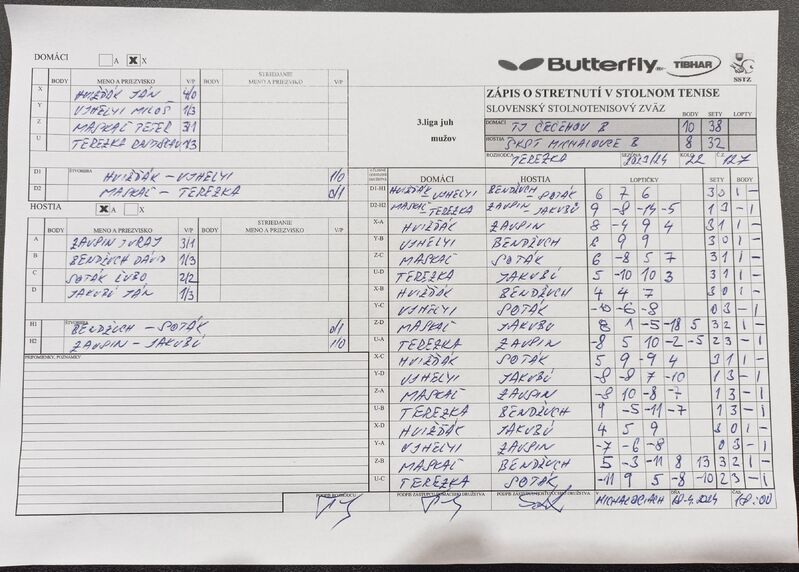 DOMÁCI A X X
Butterfly TIBHAR SSTZ
BODY MENO A PRIEZVISKO V/P BODY STRIEDANIE MENO A PRIEZVISKO V/P
X HVIŽĎÁK JÁN 4/0
Y UJHELYI MILOŠ 1/3
Z MASKAĽ PETER 3/1
U TEREZKA RASTISLAV 1/3
3.liga juh mužov
ZÁPIS O STRETNUTÍ V STOLNOM TENISE
SLOVENSKÝ STOLNOTENISOVÝ ZVÄZ BODY SETY LOPTY
DOMÁCI TJ ČEČEHOV B 10 38
HOSTIA ŠKST MICHALOVCE B 8 32
ROZHODCA TEREZKA 2023/24 KOLO 22 Č.Z. 127
D1 ŠTVORHRA HVIŽĎÁK - UJHELYI 1/0
D2 MASKAĽ - TEREZKA 0/1
HOSTIA X A X
BODY MENO A PRIEZVISKO V/P BODY STRIEDANIE MENO A PRIEZVISKO V/P
A ZAUPIN JURAJ 3/1
B BENDŽUCH DÁVID 1/3
C SOTÁK ĽUBO 2/2
D JAKUBÚ JÁN 1/3
H1 ŠTVORHRA BENDŽUCH - SOTÁK 0/1
H2 ZAUPIN - JAKUBÚ 1/0
PRIPOMIENKY, POZNÁMKY
DOMÁCI HOSTIA LOPTIČKY SETY BODY
D1-H1 HVIŽĎÁK - UJHELYI BENDŽUCH - SOTÁK 6 7 6 3 0 1 -
D2-H2 MASKAĽ - TEREZKA ZAUPIN - JAKUBÚ 9 -8 -14 -5 1 3 - 1
X-A HVIŽĎÁK ZAUPIN 8 -4 9 4 3 1 1 -
Y-B UJHELYI BENDŽUCH 9 9 3 0 1 -
Z-C MASKAĽ SOTÁK 6 -8 5 7 3 1 1 -
U-D TEREZKA JAKUBÚ 5 -10 10 3 3 1 1 -
X-B HVIŽĎÁK BENDŽUCH 4 4 7 3 0 1 -
Y-C UJHELYI SOTÁK -10 -6 -8 0 3 - 1
Z-D MASKAĽ JAKUBÚ 8 1 -5 -18 5 3 2 1 -
U-A TEREZKA ZAUPIN -8 5 10 -2 -5 2 3 - 1
X-C HVIŽĎÁK SOTÁK 5 9 -9 4 3 1 1 -
Y-D UJHELYI JAKUBÚ -8 -8 7 -10 1 3 - 1
Z-A MASKAĽ ZAUPIN -8 10 -8 -7 1 3 - 1
U-B TEREZKA BENDŽUCH 9 -5 -11 -7 1 3 - 1
X-D HVIŽĎÁK JAKUBÚ 4 5 9 3 0 1 -
Y-A UJHELYI ZAUPIN -7 -6 -8 0 3 - 1
Z-B MASKAĽ BENDŽUCH 5 -3 -11 8 13 3 2 1 -
U-C TEREZKA SOTÁK -11 9 5 -8 -10 2 3 - 1
PODPIS ROZHODCU PODPIS ZÁSTUPCU DOMÁCEHO DRUŽSTVA PODPIS ZÁSTUPCU HOSŤUJÚCEHO DRUŽSTVA V MICHALOVCIACH DŇA ČAS 18:00